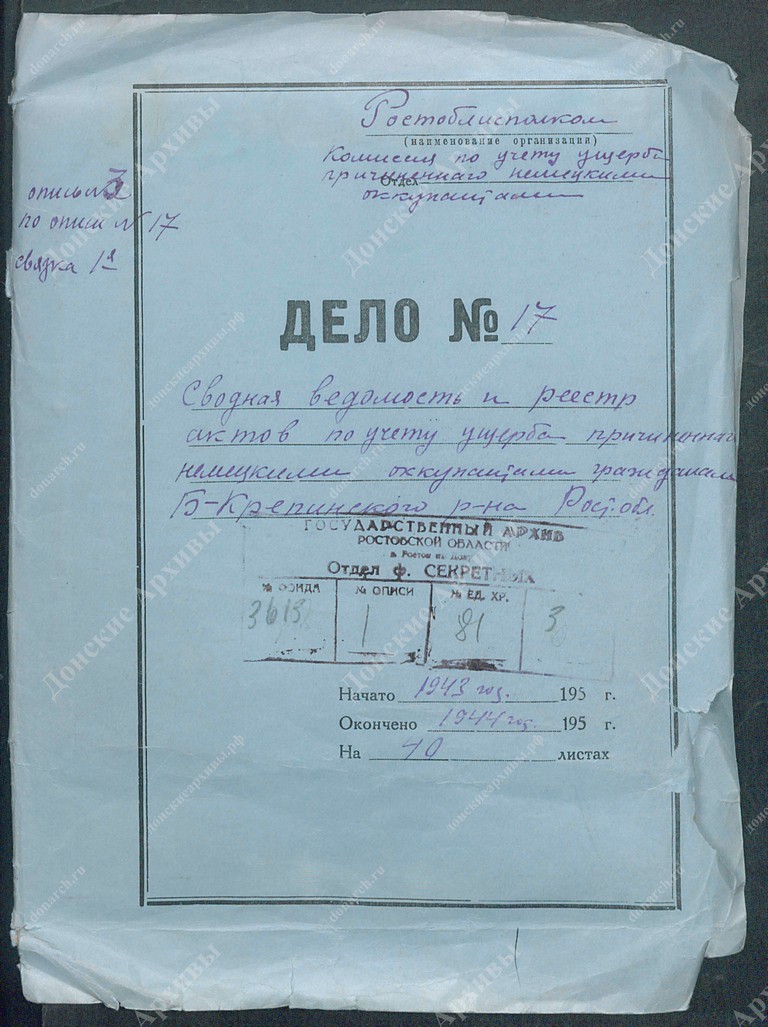 Ростоблисполком
(наименование организации)
Комиссия по учету ущерба
Отдел причиненного немецкими
оккупантами
опись № 3
по описи № 17
связка 1я
ДЕЛО № 17
Сводная ведомость и реестр
актов по учету ущерба причиненного
немецкими оккупантами гражданам
Б-Крепинского р-на Рост. обл.
ГОСУДАРСТВЕННЫЙ АРХИВ
РОСТОВСКОЙ ОБЛАСТИ
в Ростов на Дону
Отдел ф. СЕКРЕТНЫХ
№ ФОНДА № ОПИСИ № ЕД. ХР.
3613 1 81 3
Начато 1943 год. 195 г.
Окончено 1944 год. 195 г.
На 10 листах